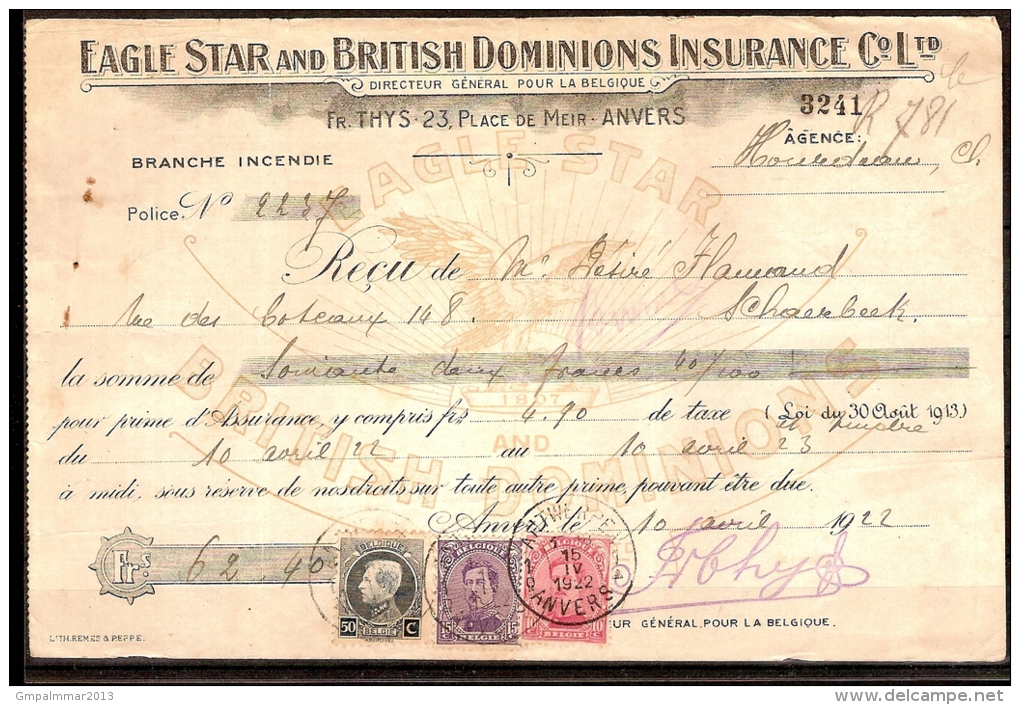 EAGLE STAR AND BRITISH DOMINIONS INSURANCE Cº LTD
DIRECTEUR GÉNÉRAL POUR LA BELGIQUE
FR. THYS - 23, PLACE DE MEIR - ANVERS
3241
R 781
AGENCE:
BRANCHE INCENDIE
Police. Nº 2237
EAGLE STAR
Reçu de Mr Désiré Flamand
rue des Coteaux 148. Schaerbeek.
la somme de Soixante deux francs 40/100
1807
pour prime d'Assurance, y compris frs. 4.90 de taxe (Loi du 30 Août 1913)
et timbre
AND
du 10 avril 22 au 10 avril 23
BRITISH DOMINIONS
à midi, sous réserve de nos droits sur toute autre prime, pouvant être due.
Anvers, le 10 avril 1922
Frs. 62.40
BELGIQUE
50 C
BELGIE
BELGIQUE
15 15
BELGIE
10 10
BELGIE
ANTWERPEN
15
IV
1922
ANVERS
LITH. REMES & PEPPE.
EUR GÉNÉRAL, POUR LA BELGIQUE.
Gmpalmmar2013
www.delcampe.net